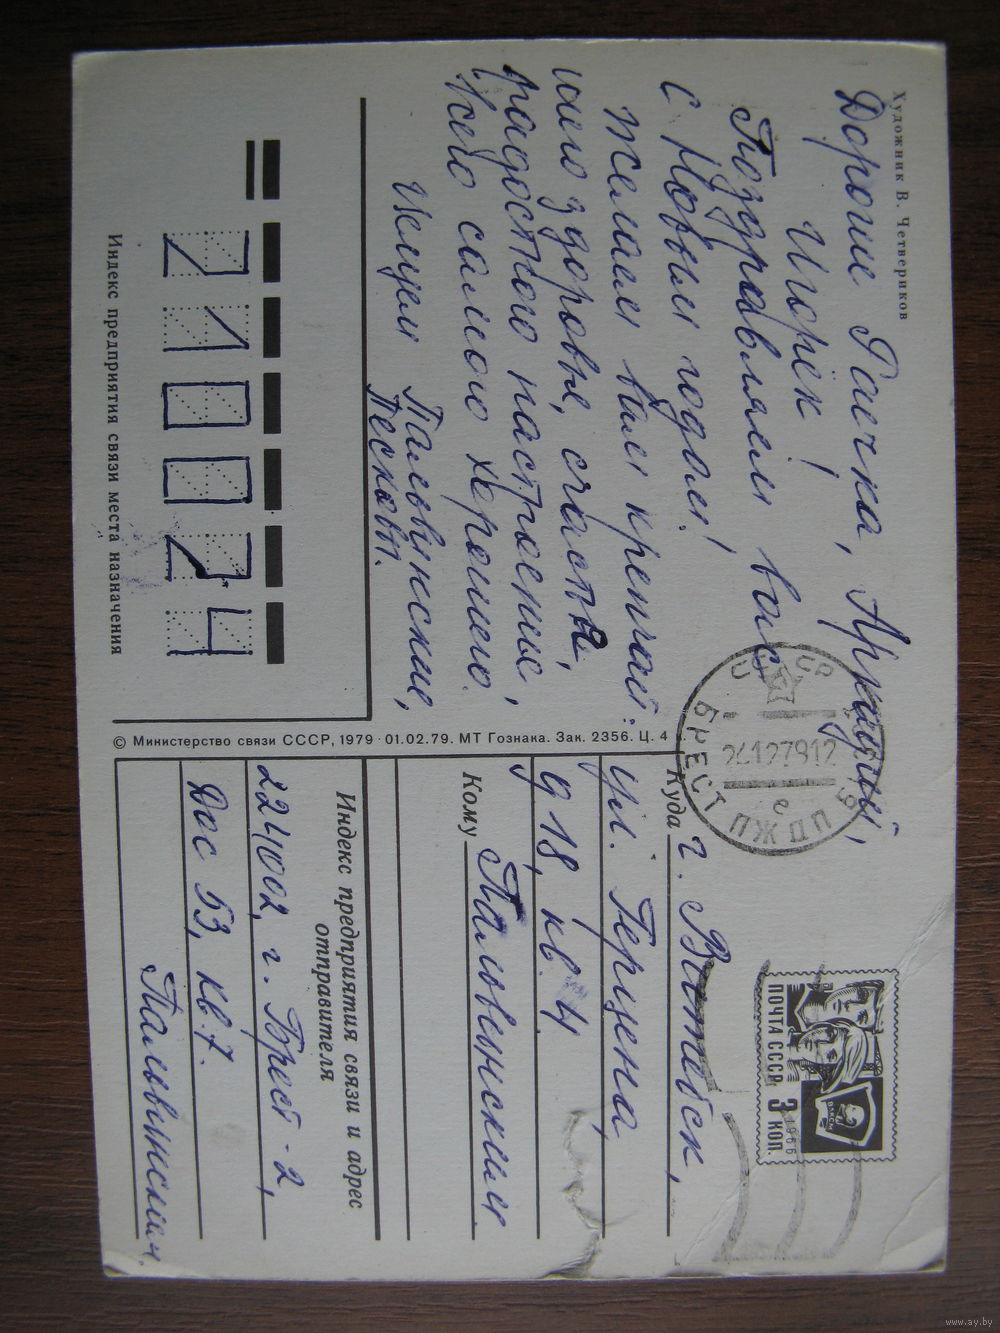 Художник В. Четвериков
Дорогие Раечка, Аркадий,
Игорёк!
Поздравляем вас
с Новым годом!
Желаем вам крепчай-
шего здоровья, счастья,
радостного настроенье,
всего самого хорошего.
Целуем Пальвинские,
Песковы.
210024
Индекс предприятия связи места назначения
© Министерство связи СССР, 1979 01.02.79. МТ Гознака. Зак. 2356. Ц. 4
СССР
БРЕСТ ПЖДП
ПОЧТА СССР 3 КОП.
1966
ВЛКСМ
Куда г. Витебск,
ул. Герцена,
д 18, кв. 4
Кому Пальвинским
Индекс предприятия связи и адрес
отправителя
224002, г. Брест-2,
Дос 53, кв. 7.
Пальвинский.
www.ay.by